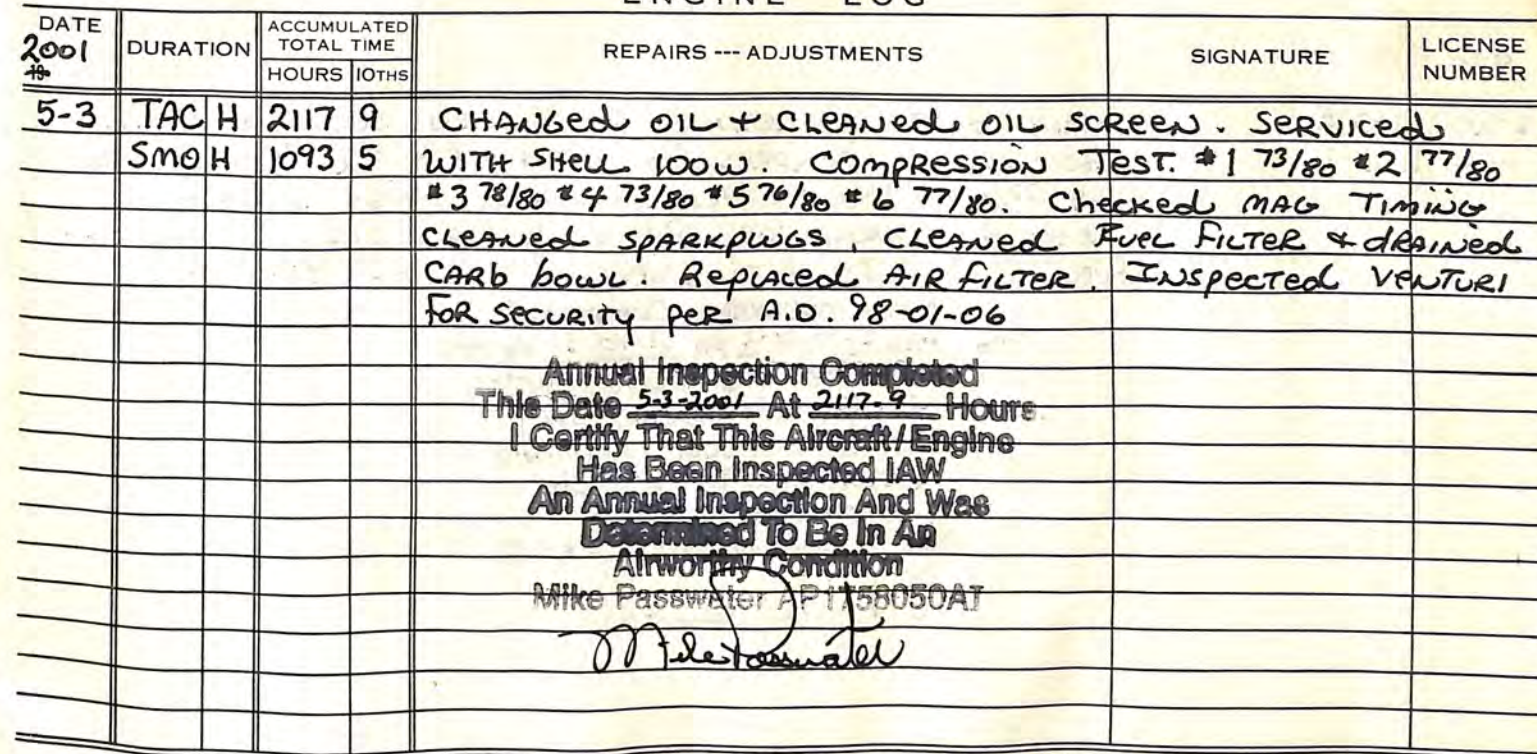 ENGINE LOG
DATE 2001 19 DURATION ACCUMULATED TOTAL TIME HOURS 10THS REPAIRS --- ADJUSTMENTS SIGNATURE LICENSE NUMBER
5-3 TAC H 2117 9 CHANGed OIL + CLEANed OIL SCREEN. SERVICEd
SMO H 1093 5 WITH SHELL 100W. COMPRESSION TEST. #1 73/80 #2 77/80
#3 78/80 #4 73/80 #5 76/80 #6 77/80. Checked MAG TIMING
CLEANed SPARKPLUGS, CLEANed FUEL FILTER & dRAINed
CARb bowl. Replaced AIR FILTER. INSpected VENTURI
FOR SECURITY PER A.D. 98-01-06
Annual Inspection Completed
This Date 5-3-2001 At 2117.9 Hours
I Certify That This Aircraft/Engine
Has Been Inspected IAW
An Annual Inspection And Was
Determined To Be In An
Airworthy Condition
Mike Passwater AP1758050AT
Mike Passwater